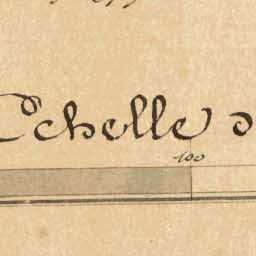 Echelle d
100